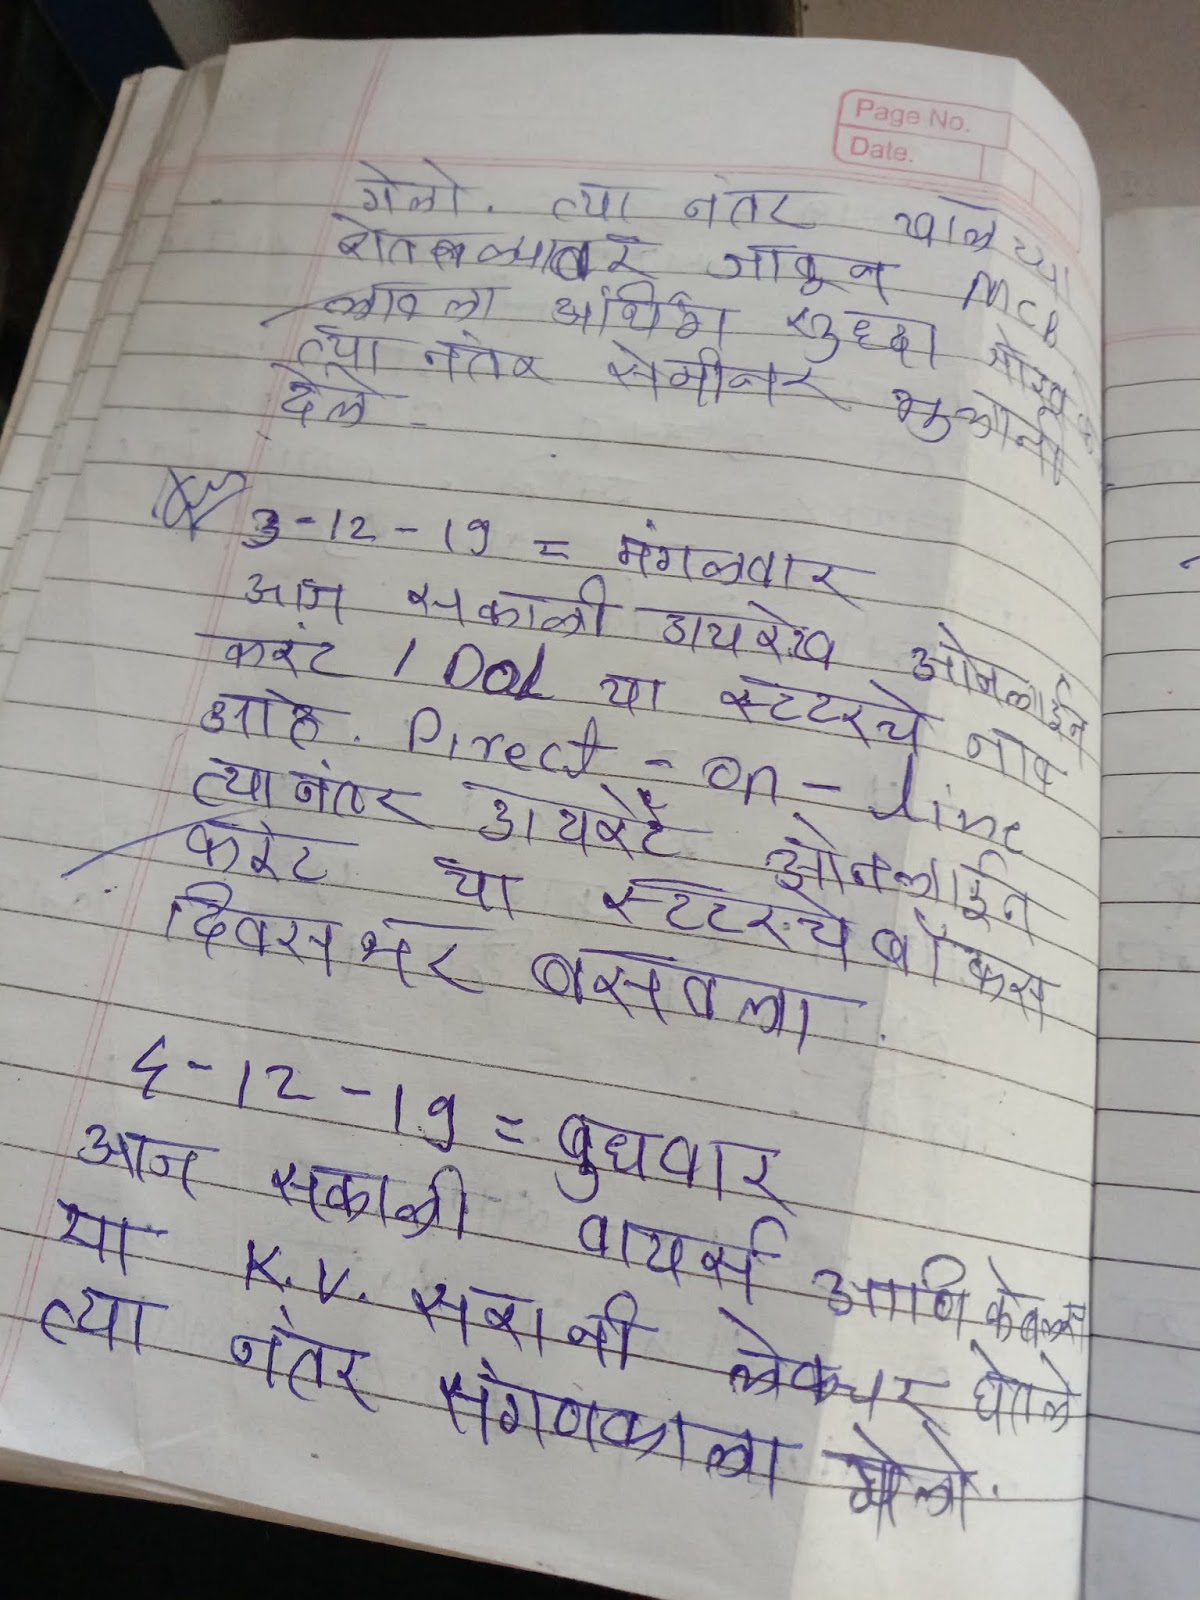 Page No.
Date.
गेलो. त्या नंतर खालच्या
जावून MCB
लावला अर्थिंग सुध्दा
त्या नंतर सेमीनर
देले.
3-12-19 = मंगलवार
आज सकाली डायरेख ओनलाईन
करंट / Dol या स्टटरचे नाव
आहे. Direct - on - line
त्यानंतर डायरेर्ट ओनलाईन
करंट या स्टटरचे बॉकस
दिवसभर बसवला.
4-12-19 = बुधवार
आज सकाली वायर्स आणि केबल्स
या K.V. सरानी लेकचर घेतले
त्या नंतर संगणकाला गेलो.